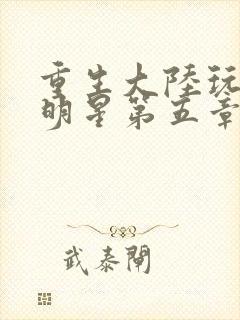 重生大陸玩
明星第五章
武泰閘